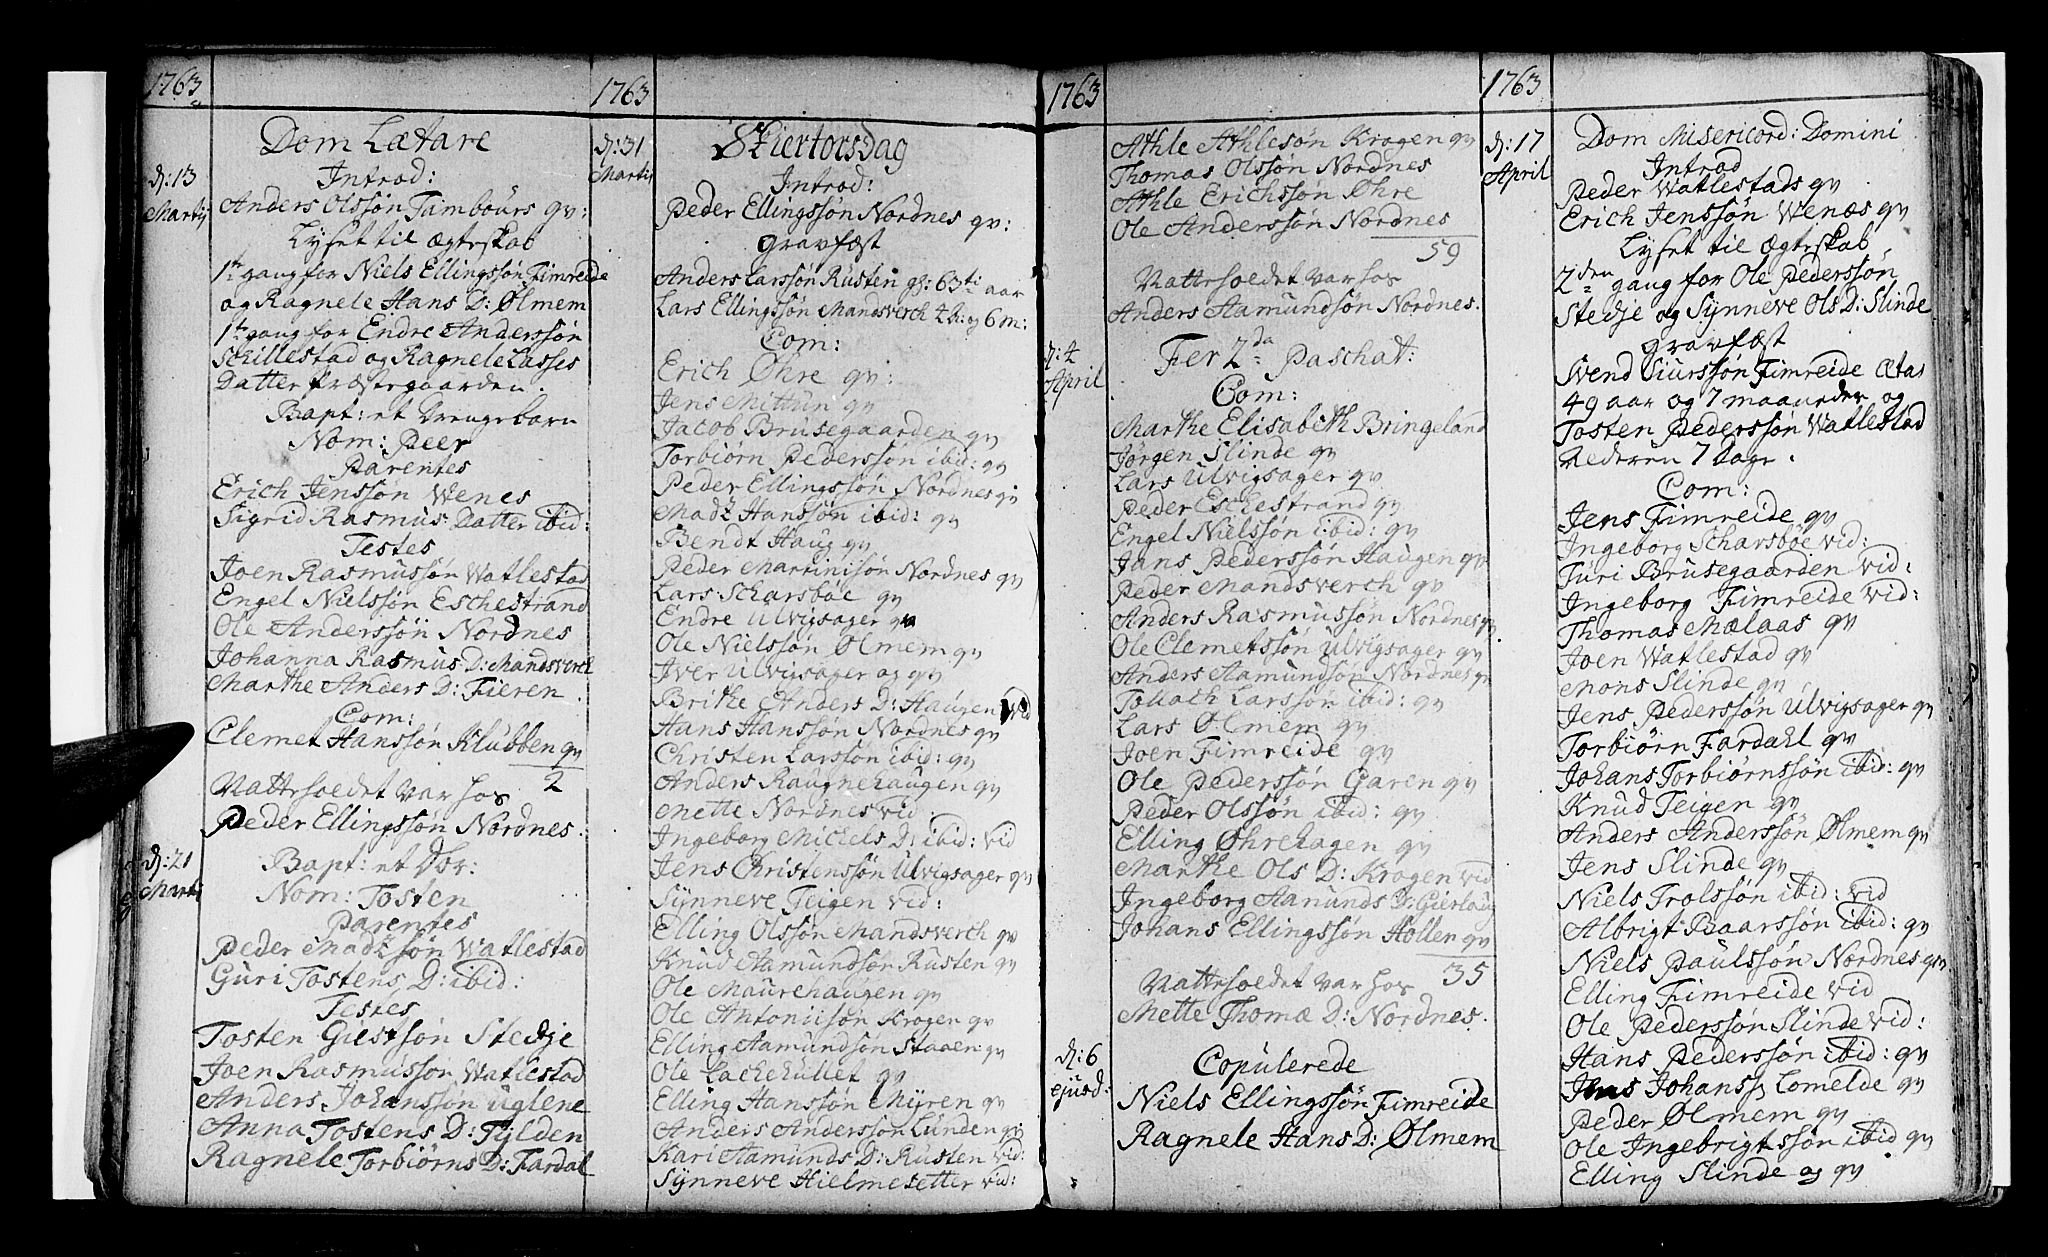 1763
Dom Lætare
d: 13 Martij
Introd:
Anders Olssøn Tambours qv:
Lyset til Ægteskab
1te gang for Niels Ellingssøn Fimreide
og Ragnele Hans D: Ølmem
1te gang for Endre Anderssøn
Schillestad og Ragnele Lasses
Datter Præstegaarden.
Bapt: et Drengebarn
Nom: Peer
Parentes
Erich Jenssøn Wenes
Sigrid Rasmus Datter ibid:
Testes
Joen Rasmussøn Watlestad
Engel Nielssøn Eschestrand
Ole Anderssøn Nordnes
Johanna Rasmus D: Mandsverch
Marthe Anders D: Fieren.
Com:
Clemet Hanssøn Klubben qv
2
Nattesoedet var hos
Peder Ellingssøn Nordnes.
d: 21 Martij
Bapt: et Dbr:
Nom: Tosten
Parentes
Peder Madzsøn Watlestad
Guri Tostens D: ibid:
Testes
Tosten Giestsøn Stedje
Joen Rasmussøn Watlestad
Anders Johanssøn Uglene
Anna Tostens D: Tylden
Ragnele Torbiørns D: Fardal
1763
d: 31 Martij
Skiertorsdag
Introd:
Peder Ellingssøn Nordnes qv:
Gravfæst
Anders Larssøn Rusten gl: 63ti aar
Lars Ellingssøn Mandsverch 4 h: og 6 m:
Com:
Erich Øhre qv:
Jens Mittun qv
Jacob Brusegaarden qv
Torbiørn Pederssøn ibid: qv
Peder Ellingssøn Nordnes qv
Madz Hanssøn ibid: qv
Bendt Haug qv
Peder Martinisøn Nordnes qv
Lars Scharsbøe qv
Endre Ulvigsager qv
Ole Nielssøn Ølmem qv
Iver Ulvigsager og qv
Brithe Anders D: Haugen vid
Hans Hanssøn Nordnes qv
Christen Larssøn ibid: qv
Anders Raugnehaugen qv
Mette Nordnes vid
Ingeborg Michels D: ibid: vid
Jens Christenssøn Ulvigsager qv
Synneve Teigen vid:
Elling Olssøn Mandsverch qv
Knud Aamundsøn Rusten qv
Ole Maurehaugen qv
Ole Antonisøn Krogen qv
Elling Aamundsøn Staaen qv
Ole Lachehullet qv
Elling Hanssøn Myren qv
Anders Anderssøn Lunden qv
Kari Aamunds D: Rusten vid:
Synneve Hielmesetter vid:
1763
Athle Athlesøn Krogen qv
Thomas Olssøn Nordnes
Athle Erichssøn Øhre
Ole Anderssøn Nordnes
59
Nattesoedet var hos
Anders Aamundsøn Nordnes.
d: 4 April
Fer 2da Paschat:
Com:
Marthe Elisabeth Bringeland
Jørgen Slinde qv
Lars Ulvigsager qv
Peder Eschestrand qv
Engel Nielssøn ibid: qv
Hans Pederssøn Haugen qv
Peder Mandsverch qv
Anders Rasmussøn Nordnes qv
Ole Clemetssøn Ulvigsager qv
Anders Aamundsøn Nordnes qv
Tollach Larssøn ibid: qv
Lars Ølmem qv
Joen Fimreide qv
Ole Pederssøn Garen qv
Peder Olssøn ibid: qv
Elling Øhrehagen qv
Marthe Ols D: Krogen vid
Ingeborg Aamunds D: Gierløug
Johans Ellingssøn Hollen qv
35
Nattesoedet var hos
Mette Thomæ D: Nordnes.
d: 6 ejusd:
Copulerede
Niels Ellingssøn Fimreide
Ragnele Hans D: Ølmem
1763
d: 17 April
Dom Misericord: Domini
Introd
Peder Watlestads qv
Erich Jenssøn Wenæs qv
Lyset til Ægteskab
2den gang for Ole Pederssøn
Stedje og Synneve Ols D: Slinde
Gravfæst
Svend Siurssøn Fimreide Ætas
49 aar og 7 maaneder og
Tosten Pederssøn Watlestad
Æderen 7 dage.
Com:
Jens Fimreide qv
Ingeborg Scharsbøe vid:
Turi Brusegaarden vid:
Ingeborg Fimreide vid:
Thomas Mælaas qv
Joen Watlestad qv
Mons Slinde qv
Jens Pederssøn Ulvigsager qv
Torbiørn Fardahl qv
Johans Torbiørnssøn ibid: qv
Knud Teigen qv
Anders Anderssøn Ølmem qv
Jens Slinde qv
Niels Trolssøn ibid: vid
Albrigt Baarssøn ibid: qv
Niels Paulssøn Nordnes qv
Elling Fimreide vid
Ole Pederssøn Slinde vid:
Hans Pederssøn ibid: qv
Jens Johanss. Lomelde qv
Peder Ølmem qv
Ole Ingebrigtssøn ibid qv
Elling Slinde og qv